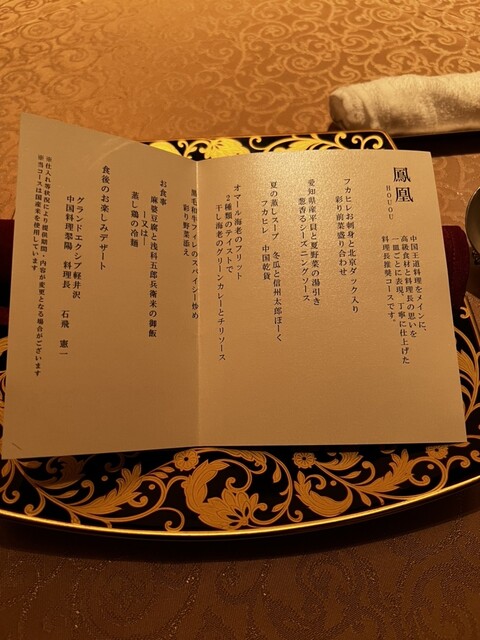 鳳凰
HOUOU
中国王道料理をメインに、
高級食材と料理長の思いを
一皿ごとに表現、丁寧に仕上げた
料理長推奨コースです。
フカヒレお刺身と北京ダック入り
彩り前菜盛り合わせ
愛知県産平貝と夏野菜の湯引き
葱香るシーズニングソース
夏の蒸しスープ 冬瓜と信州太郎ぽーく
フカヒレ 中国乾貨
オマール海老のフリット
2種類のテイストで
干し海老のグリーンカレーとチリソース
黒毛和牛フィレのスパイシー炒め
彩り野菜添え
お食事
麻婆豆腐と浅科五郎兵衛米の御飯
―又は―
蒸し鶏の冷麺
食後のお楽しみデザート
グランドエクシブ軽井沢
中国料理翠陽 料理長 石飛 憲一
※仕入れ等状況により提供期間・内容が変更となる場合がございます
※当コースは国産米を使用しています